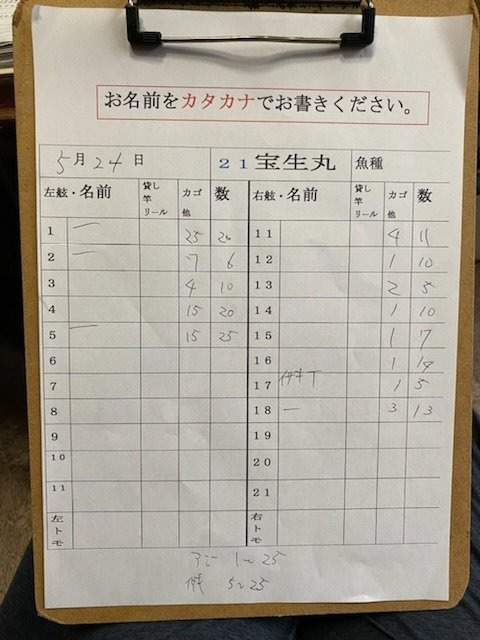 お名前をカタカナでお書きください。
5月24日 21宝生丸 魚種
左舷・名前 貸し竿リール カゴ他 数 右舷・名前 貸し竿リール カゴ他 数
1 25 26 11 4 11
2 7 6 12 1 10
3 4 10 13 2 5
4 15 20 14 1 10
5 15 25 15 1 7
6 16 1 14
7 17 1 5
8 18 3 13
9 19
10 20
11 21
左トモ 右トモ
1〜25
5〜25